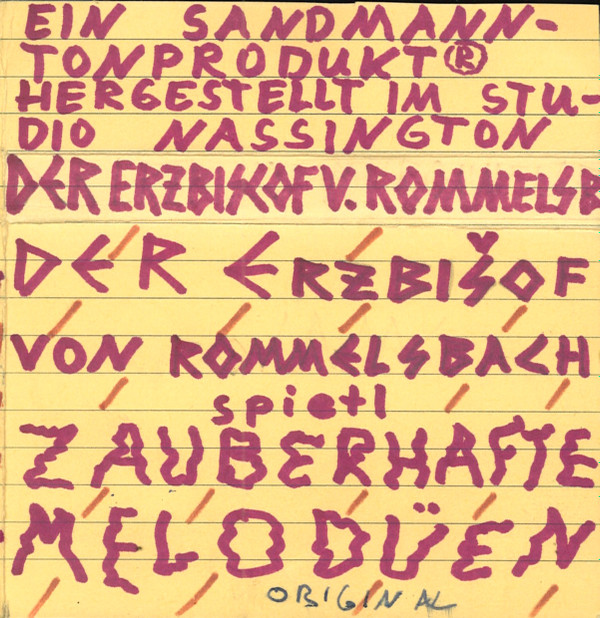 EIN SANDMANN-
TONPRODUKT®
HERGESTELLT IM STU-
DIO NASSINGTON
DER ERZBISCHOF V. ROMMELSB
DER ERZBIŠOF
VON ROMMELSBACH
spietl
ZAUBERHAFTE
MELODÜEN
ORIGINAL